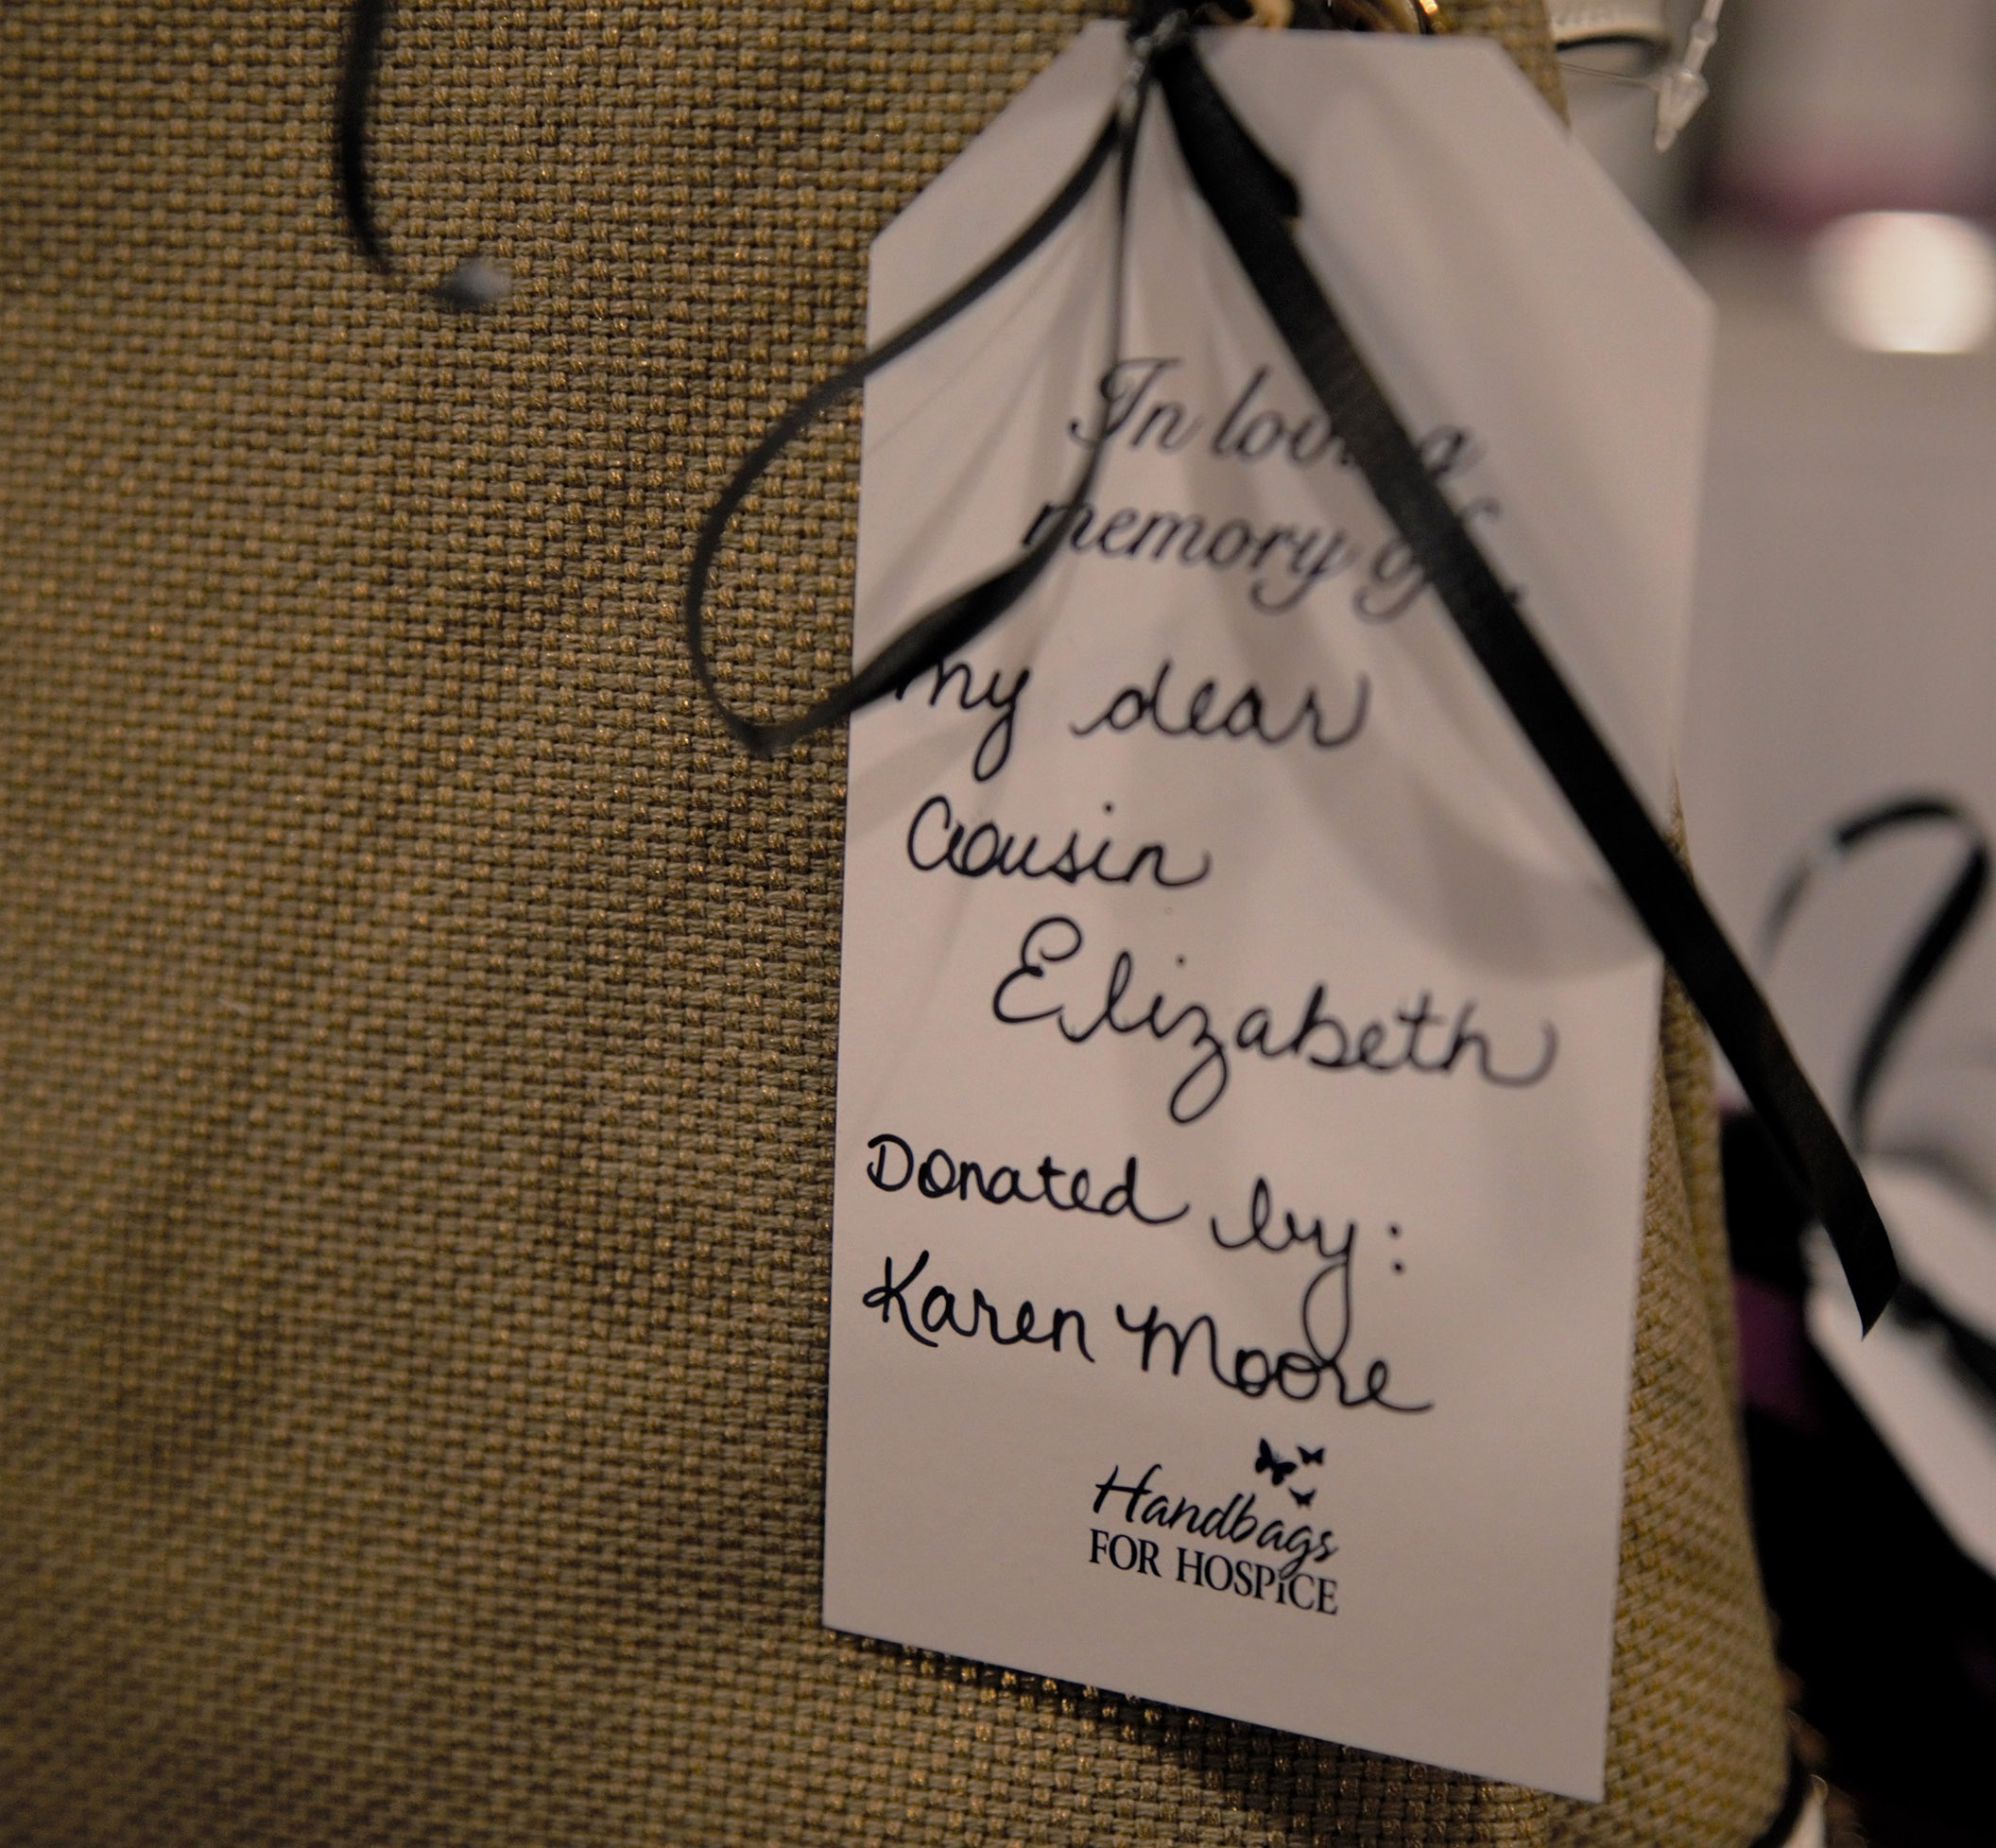 In loving
memory of
my dear
Cousin
Elizabeth
Donated by:
Karen Moore
Handbags
FOR HOSPICE